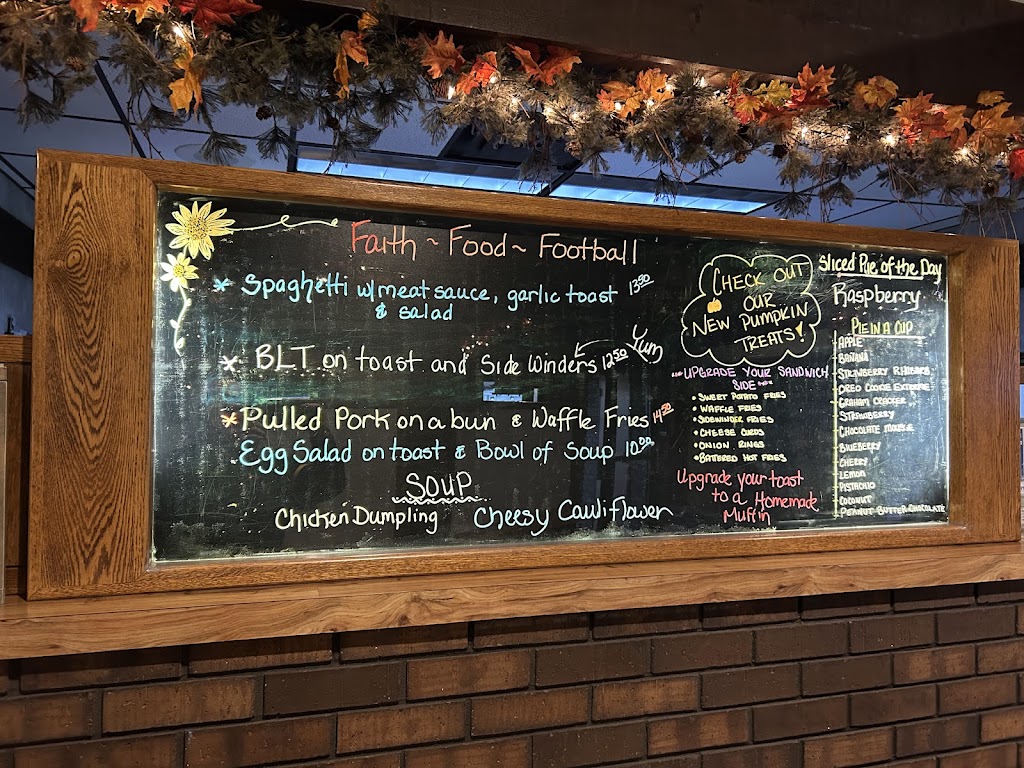 Faith ~ Food ~ Football
* Spaghetti w/meat sauce, garlic toast 13.50
& salad
* BLT on toast and Side Winders 12.50 Yum
* Pulled Pork on a bun & Waffle Fries 14.50
Egg Salad on toast & Bowl of Soup 10.00
SOUP
Chicken Dumpling Cheesy Cauliflower
CHECK OUT
OUR
NEW PUMPKIN
TREATS!
UPGRADE YOUR SANDWICH
SIDE
• SWEET POTATO FRIES
• WAFFLE FRIES
• SIDEWINDER FRIES
• CHEESE CURDS
• ONION RINGS
• BATTERED HOT FRIES
Upgrade your toast
to a Homemade
Muffin
Sliced Pie of the Day
Raspberry
PIE IN A CUP
APPLE
BANANA
STRAWBERRY RHUBARB
OREO COOKIE EXTREME
GRAHAM CRACKER
STRAWBERRY
CHOCOLATE MOUSSE
BLUEBERRY
CHERRY
LEMON
PISTACHIO
COCONUT
PEANUT BUTTER CHOCOLATE